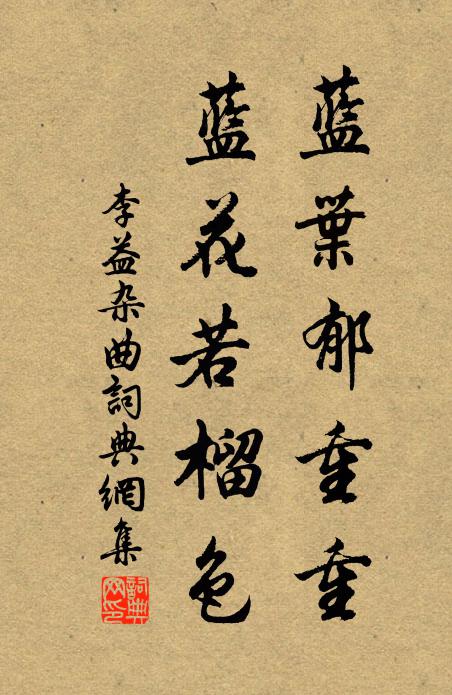 藍葉郁重重
藍花若榴色
李益杂曲詞典網集
詞典网印